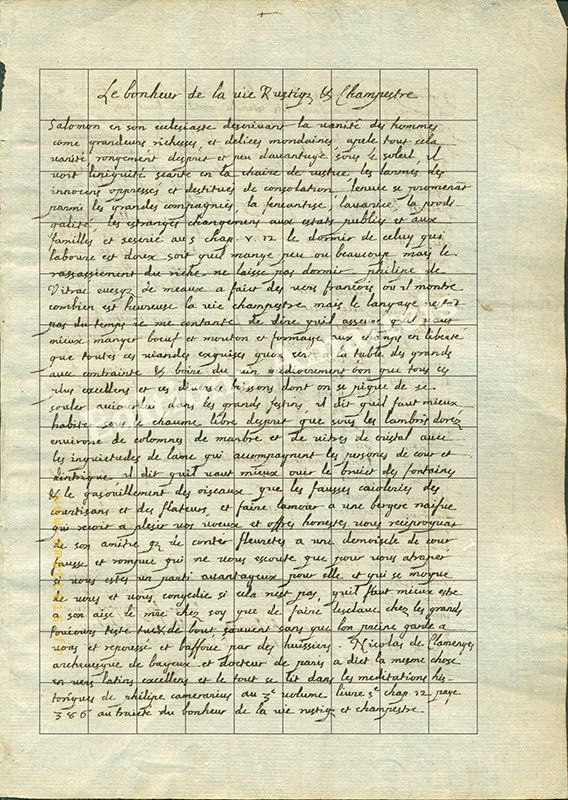 Le bonheur de la vie Rustiqz & Champestre
Salomon en son eclesiaste descrivant la vanité des hommes
come grandeurs richesses, et delices mondaines apele tout cela
vanité rongement desprit et peu davantage sous le soleil, il
voit liniquité seante en la chaire de iustice, les larmes des
innocens oppresses et destitues de consolation lenvie se promenat
parmi les grandes compagnies la feneantise lavarice la prodi
galité les estranges changemens aux estats publics et aux
familles et sescrie au 5 chap. v. 12 le dormir de celuy qui
laboure est doux soit quil mange peu ou beaucoup mais le
rassasiement du riche ne laisse pas dormir philipe de
Vitrac evesqz de meaux a faict des vers francois ou il montre
combien est heureuse la vie champestre mais le langage nestat
pas du temps ie me contante de dire quil asseure quil vaut
mieux manger boeuf et mouton et formage aux champs en liberté
que toutes ces viandes exquises quon sert a la table des grands
avec contrainte & boire du vin mediocrement bon que tous ces
plus excellens et ces diverses boissons dont on se pique de se
souler auiourdhui dans les grands festins, il dit quil faut mieux
habiter sous le chaume libre desprit que sous les lambris dorez
environé de colomnes de marbre et de vitres de cristal avec
les inquietudes de lame qui accompagnent les persones de cour et
dintrigue il dit quil vaut mieux ouir le bruict des fontaines
& le gasouillement des oiseaux que les fausses caioleries des
courtisans et des flateurs, et faire lamour a une bergere naifue
qui recoit a plesir vos voeux et offres honestes vous reciproquat
de son amitie qz de conter fleuretes a une demoiselle de cour
fausse et rompue qui ne vous escoute que pour vous atraper
si vous estes un parti avantageux pour elle et qui se moque
de vous et vous congedie si cela nest pas, quil faut mieux estre
a son aise le mᵉ chez soy que de faire lesclave chez les grands
toujours teste nue de bout souvent sans que lon preine garde a
vous et repoussé et baffoué par des huissiers. Nicolas de Clamenges
archevesque de bayeux et docteur de paris a dict la mesme chose
en vers latins excellens et le tout se lit dans les meditations his-
toriques de philipe camerarius au 3ᵉ volume livre 5ᵉ chap. 12 page
386 au traicté du bonheur de la vie rustiqz et champestre